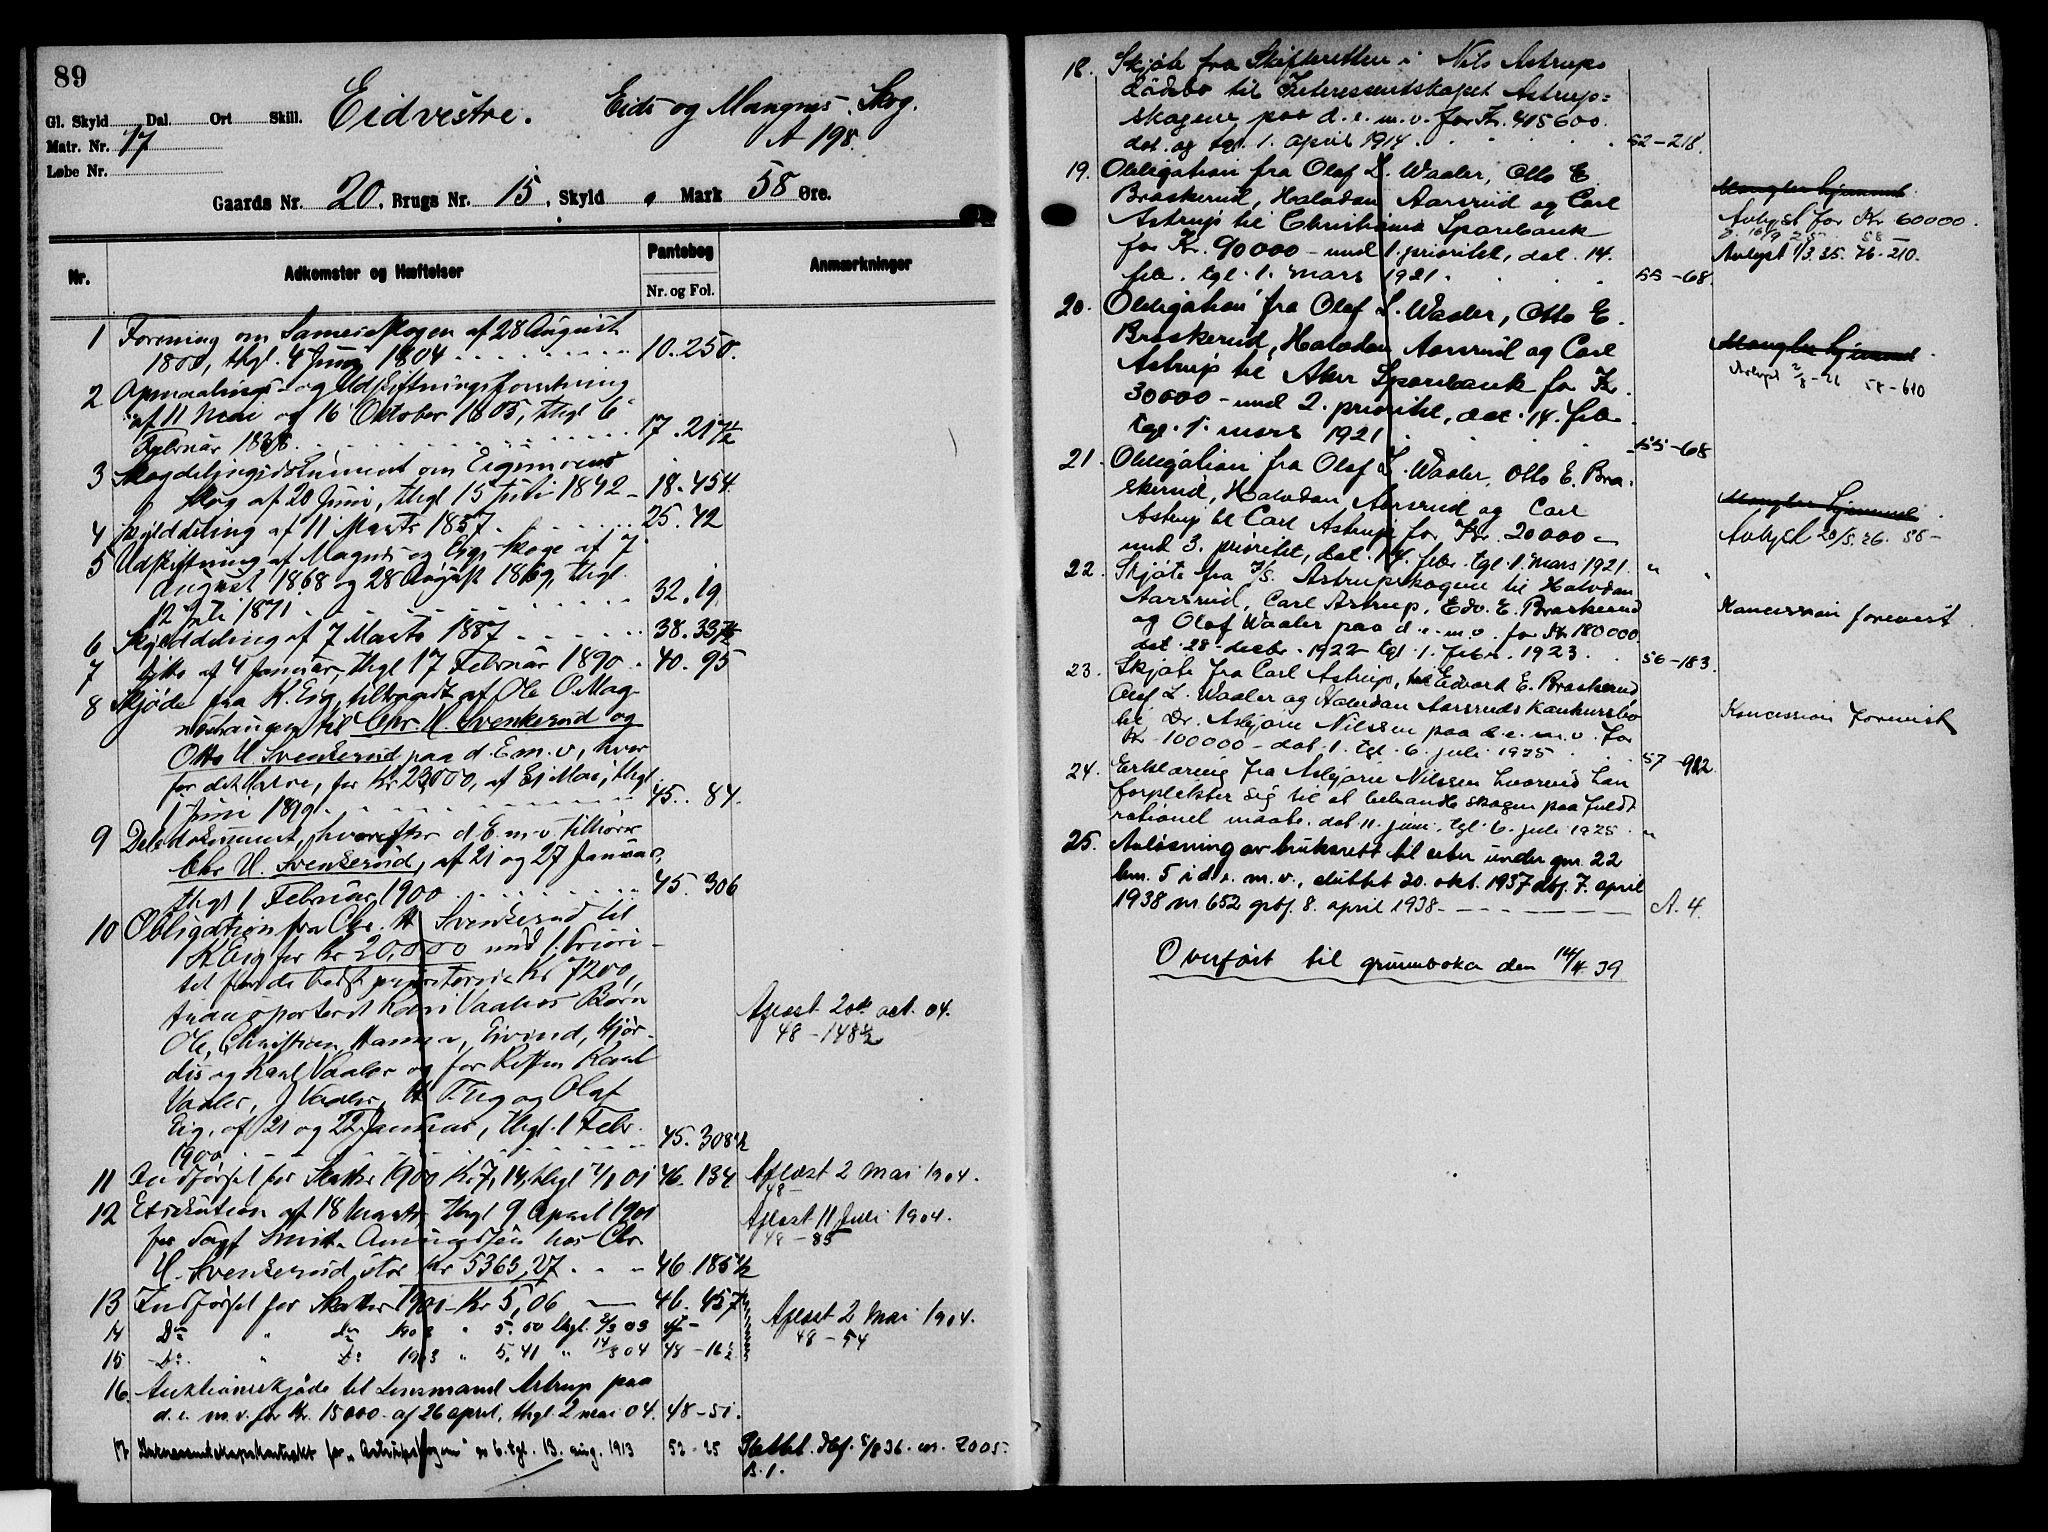 89
Gl. Skyld Dal. Ort Skill. Eidvestre. Eids og Mangnes Skog.
Matr. Nr. 17 A 198.
Løbe Nr.
Gaards Nr. 20, Brugs Nr. 15, Skyld Mark 58 Øre.
Nr. Adkomster og Hæftelser Pantebog Anmærkninger
Nr. og Fol.
1 Forening om Sameieskogen af 28 August
1800, thgl. 4 Juni 1804 10.250.
2 Opmaalings- og Udskiftningsforretning
af 11 Mai og 16 Oktober 1805, thgl 6
Februar 1838. 17.217½
3 Skogdelingsdokument om
Skog af 20 Juni, thgl 15 Juli 1842 18.454.
4 Skylddeling af 11 Marts 1857. 25.42
5 Udskiftning af Magnes og Eigs Skoge af 7
August 1868 og 28 August 1869, thgl.
12 Juli 1871 32.19
6 Skylddeling af 7 Marts 1887 38.337½
7 Ditto af 4 Januar, thgl 17 Februar 1890 40.95
8 Skjøde fra K. Eig, tiltraadt af Ole O. Mag-
til Chr. H. Svenkerud og
Otto H. Svenkerud paa d. E. m. v, hver
for det Halve, for Kr 23000, af Mai, thgl.
1 Juni 1899. 45.84.
9 Deledokument, hvorefter d. E. m. v tilhører
Chr H. Svenkerud, af 21 og 27 Januar,
thgl 1 Februar 1900 45.306
10 Obligation fra Chr. H Svenkerud til
K Eig for Kr 20,000 med 1. Priori-
tet for de bedst prioriterede Kr 7200,
transporteret Vaalers Børn
Ole, Christian, Hanna, Eivind, Hjør-
dis og Karl Vaaler og for Resten Karl
Vaaler, J Vaaler, H. T. Eig og Olaf
Eig, af 21 og 22 Januar, thgl. 1 Febr.
1900 45.308½
Aflæst 20de oct. 04.
48 – 148½
11 Indførsel for Skatter 1900 Kr. 7,14, thgl 01 46.134
Aflæst 2 Mai 1904.
48 –
12 Exekution af 18 Marts Thgl 9 April 1901
for Sagf Smith Amundsen hos Chr
H. Svenkerud stor Kr 5365,27 46.185½
Aflæst 11 Juli 1904.
48 – 85
13 Indførsel for Skatter 1901 Kr 5,06 46.457
14 Do " Do 1902 " 5.00 thgl. 03 47 –
15 Do " Do 1903 " 5.41 " 14/3 04 48 – 16½
Aflæst 2 Mai 1904.
48 – 54
16. Auktionsskjøde til Lensmand Astrup paa
d. e. m. v. for Kr. 15000. af 26 april, thgl 2 mai 04. 48 – 51.
17. Interessentskapskontrakt for "Astrupskogene" 6. tgl. 13. aug. 1913 52 – 25 Slettet. dbf. 5/8 36. nr. 2005
B. 1.
18. Skjøte fra Skifteretten i Nils Astrups
dødsbo til Interessentskapet Astrup-
skogene paa d. e. m. v. for Kr. 415600.
dat. og tgl. 1. april 1914 52 – 218.
19. Obligation fra Olaf L. Waaler, Otto E
Braskerud, Halvdan Aarsrud og Carl
Astrup til Christiania Sparebank
for Kr. 90000 – med 1. prioritet, dat. 14.
feb. tgl. 1. mars 1921. 55 – 68.
Mangler hjemmel
Avlyst for Kr 60000.
d. 16/9 25 58 –
Avlyst 1/3. 35. 76. 210.
20. Obligation fra Olaf L. Waaler, Otto E.
Braskerud, Halvdan Aarsrud og Carl
Astrup til Aker Sparebank for Kr.
30000 – med 2. prioritet, dat. 14. feb.
tgl. 1. mars 1921 55 – 68
Mangler hjemmel
Avlyst 2/8 – 26 58 – 610
21. Obligation fra Olaf L. Waaler, Otto E. Bra-
skerud, Halvdan Aarsrud og Carl
Astrup til Carl Astrup for Kr. 20000 –
med 3. prioritet, dat. 14. feb. tgl. 1. mars 1921. "
Mangler hjemmel
Avlyst 20/5. 26. 58 –
22. Skjøte fra I/S. Astrupskogene til Halvdan
Aarsrud, Carl Astrup, Edv. E. Braskerud
og Olaf Waaler paa d. e. m. v. for Kr 180000
dat. 28. desbr. 1922 tgl. 1. febr. 1923. 56 – 183.
Koncession forevist.
23. Skjøte fra Carl Astrup, Edvard E. Braskerud
Olaf L. Waaler og Halvdan Aarsruds konkursbo
til Dr. Asbjørn Nilssen paa d. e. m. v. for
Kr 100000 – dat. 1. tgl. 6. juli 1925 57 – 982.
Koncession forevist
24. Erklæring fra Asbjørn Nilssen hvorved han
forplikter sig til at behandle skogen paa fuldt
rationel maate. dat. 11. juni, tgl. 6. juli 1925. "
25. Avløsning av bruksrett til seter under gnr. 22
bnr. 5 i d. e. m. v., sluttet 20. okt. 1937 dbf. 7. april
1938 nr. 652 grbf. 8. april 1938 – A. 4.
Overført til grunnboka den 14/4 39